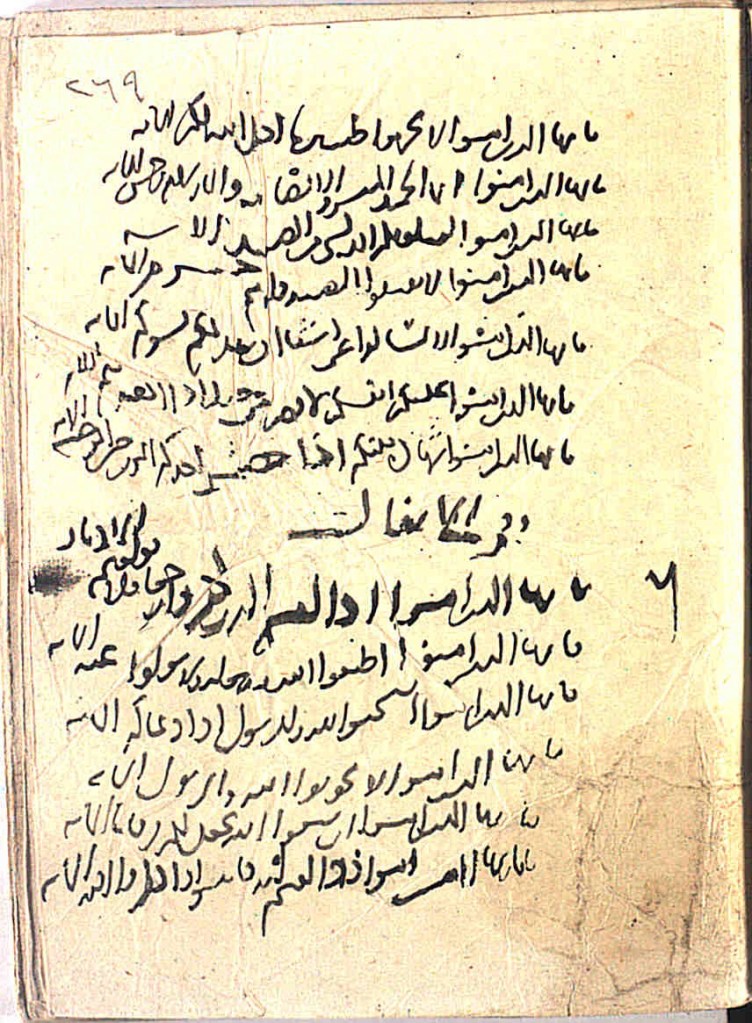 ٢٦٩
يا ايها الذين امنوا لا تحرموا طيبات ما احل الله لكم الايه
يا ايها الذين امنوا انما الخمر والميسر والانصاب والازلام رجس الايه
يا ايها الذين امنوا ليبلونكم الله بشي من الصيد الايه
يا ايها الذين امنوا لا تقتلوا الصيد وانتم حرم الايه
يا ايها الذين امنوا لا تسالوا عن اشيا ان تبد لكم تسوكم الايه
يا ايها الذين امنوا عليكم انفسكم لا يضركم من ضل اذا اهتديتم الايه
يا ايها الذين امنوا شهادة بينكم اذا حضر احدكم الموت حين الوصيه الايه
الانفال
٦
يا ايها الذين امنوا اذا لقيتم الذين كفروا زحفا فلا تولوهم الادبار
يا ايها الذين امنوا اطيعوا الله ورسوله ولا تولوا عنه الايه
يا ايها الذين امنوا استجيبوا لله وللرسول اذا دعاكم الايه
يا ايها الذين امنوا لا تخونوا الله والرسول الايه
يا ايها الذين امنوا ان تتقوا الله يجعل لكم فرقانا الايه
يا ايها الذين امنوا اذا لقيتم فئه فاثبتوا واذكروا الله الايه